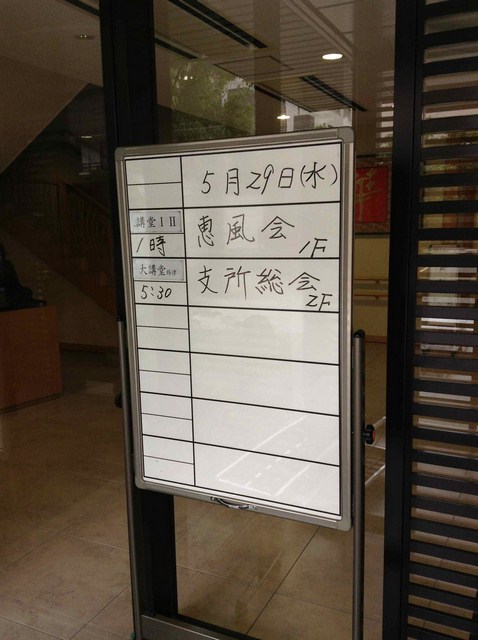 5月29日(水)
講堂 I II
1時
恵風会
1F
大講堂
5:30
支所総会
2F